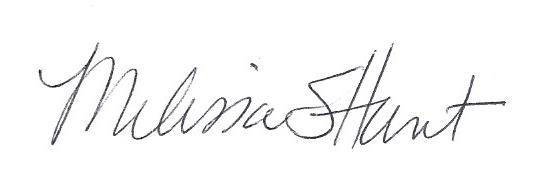 Melissa S Hunt